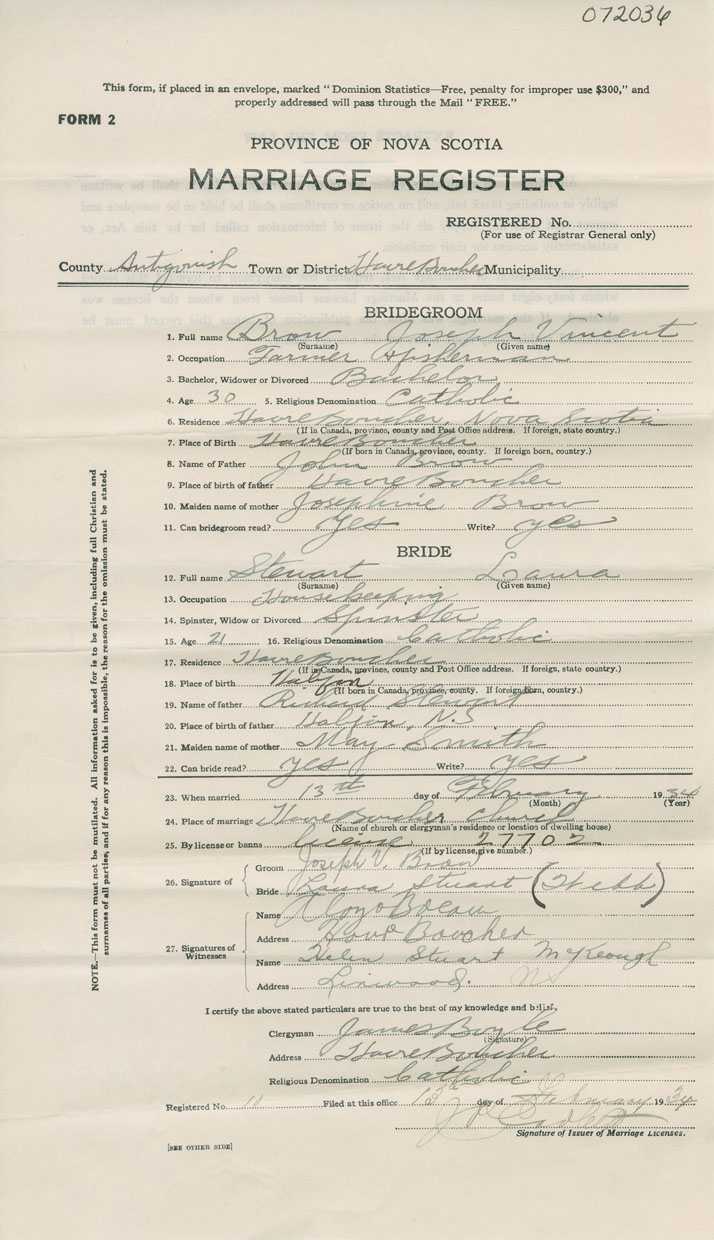 072036
This form, if placed in an envelope, marked "Dominion Statistics—Free, penalty for improper use $300," and
properly addressed will pass through the Mail "FREE."
FORM 2
PROVINCE OF NOVA SCOTIA
MARRIAGE REGISTER
REGISTERED No.
(For use of Registrar General only)
County Antigonish Town or District Havre Boucher Municipality
BRIDEGROOM
1. Full name Brow Joseph Vincent
(Surname) (Given name)
2. Occupation Farmer & fisherman
3. Bachelor, Widower or Divorced Bachelor
4. Age 30 5. Religious Denomination Catholic
6. Residence Havre Boucher, Nova Scotia
(If in Canada, province, county and Post Office address. If foreign, state country.)
7. Place of Birth Havre Boucher
(If born in Canada, province, county. If foreign born, country.)
8. Name of Father John Brow
9. Place of birth of father Havre Boucher
10. Maiden name of mother Josephine Brow
11. Can bridegroom read? Yes Write? yes
BRIDE
12. Full name Stewart Laura
(Surname) (Given name)
13. Occupation Housekeeping
14. Spinster, Widow or Divorced Spinster
15. Age 21 16. Religious Denomination Catholic
17. Residence Havre Boucher
(If in Canada, province, county and Post Office address. If foreign, state country.)
18. Place of birth
(If born in Canada, province, county. If foreign born, country.)
19. Name of father Richard Stewart
20. Place of birth of father N.S
21. Maiden name of mother May Smith
22. Can bride read? yes Write? yes
23. When married 13th day of February 1934
(Month) (Year)
24. Place of marriage Havre Boucher church
(Name of church or clergyman's residence or location of dwelling house)
25. By license or banns license 27702
(If by license, give number.)
26. Signature of
Groom Joseph V. Brow
Bride Laura Stuart (Webb)
27. Signatures of Witnesses
Name
Address Boucher
Name Helen Stuart McKeough
Address Linwood. NS
I certify the above stated particulars are true to the best of my knowledge and belief,
Clergyman James Boyle
(Signature)
Address Havre Boucher
Religious Denomination Catholic
Registered No. Filed at this office 13th day of February 1934
Signature of Issuer of Marriage Licenses.
[SEE OTHER SIDE]
NOTE.—This form must not be mutilated. All information asked for is to be given, including full Christian and
surnames of all parties, and if for any reason this is impossible, the reason for the omission must be stated.